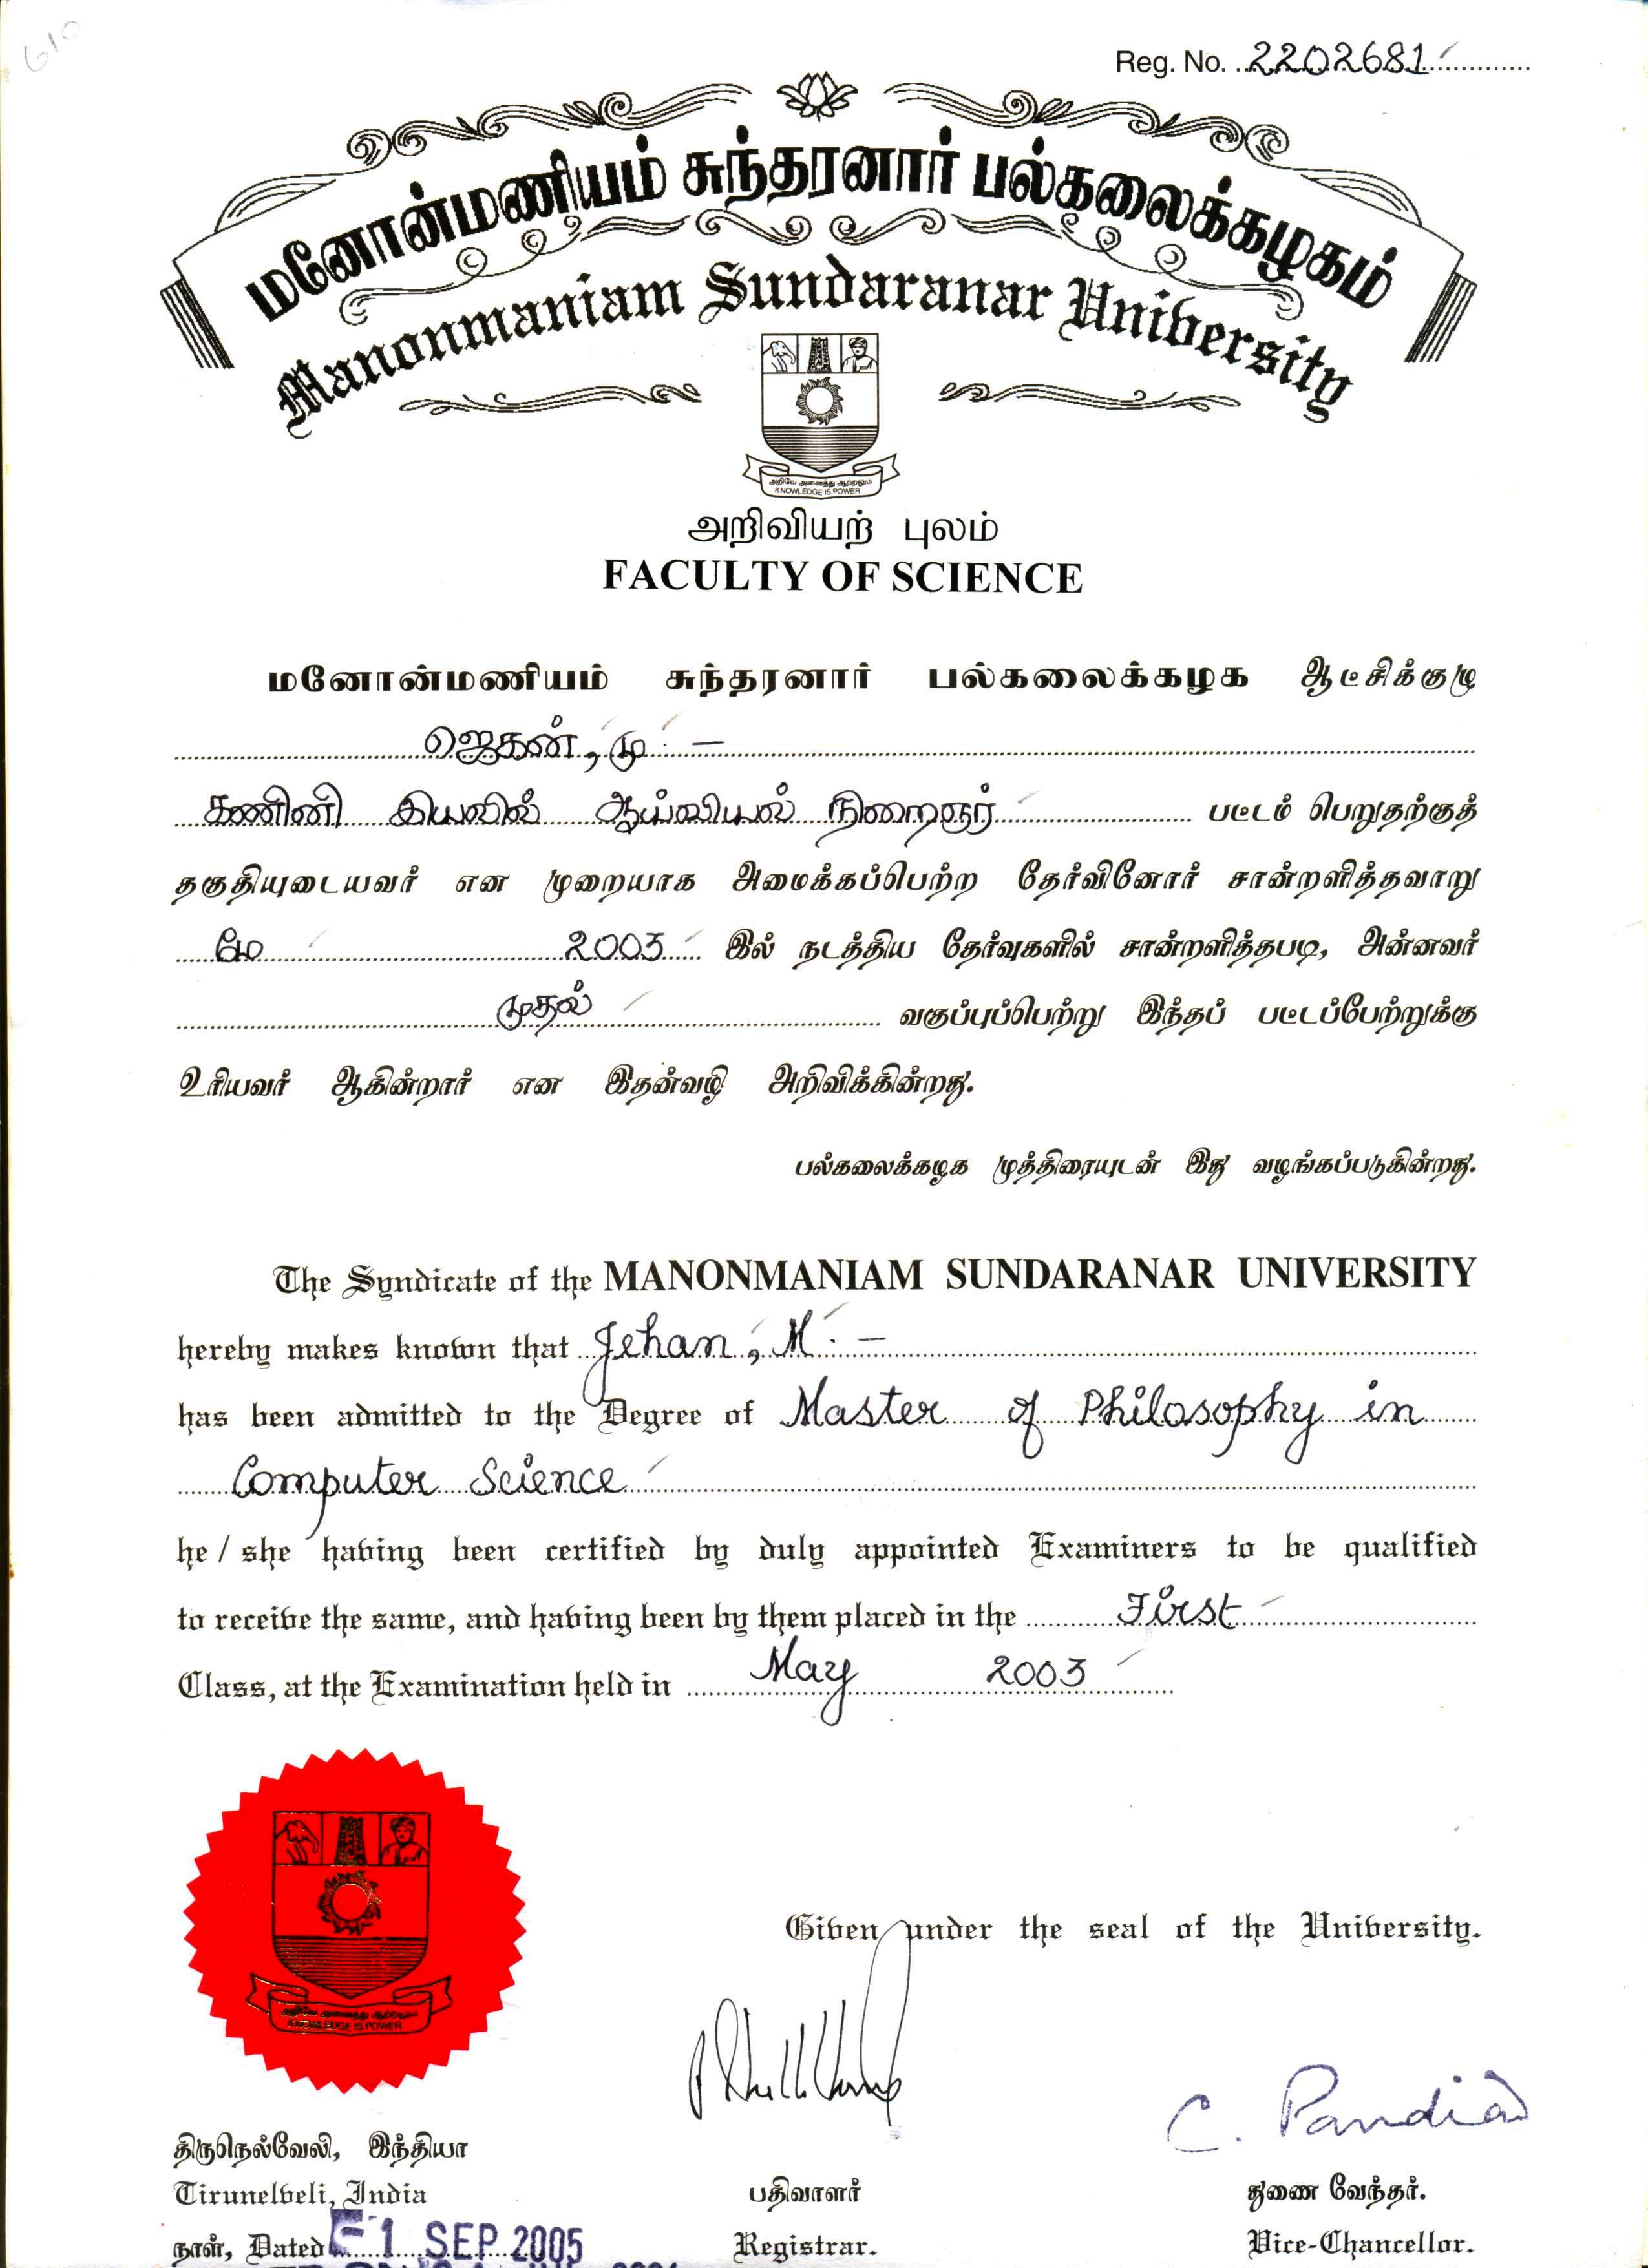 610
Reg. No. 2202681
மனோன்மணியம் சுந்தரனார் பல்கலைக்கழகம்
Manonmaniam Sundaranar University
அறிவே அனைத்து ஆற்றலும்
KNOWLEDGE IS POWER
அறிவியற் புலம்
FACULTY OF SCIENCE
மனோன்மணியம் சுந்தரனார் பல்கலைக்கழக ஆட்சிக்குழு
ஜெகன், மு. –
கணினி இயலில் ஆய்வியல் நிறைஞர் பட்டம் பெறுதற்குத்
தகுதியுடையவர் என முறையாக அமைக்கப்பெற்ற தேர்வினோர் சான்றளித்தவாறு
மே 2003 இல் நடத்திய தேர்வுகளில் சான்றளித்தபடி, அன்னவர்
முதல் வகுப்புப்பெற்று இந்தப் பட்டப்பேற்றுக்கு
உரியவர் ஆகின்றார் என இதன்வழி அறிவிக்கின்றது.
பல்கலைக்கழக முத்திரையுடன் இது வழங்கப்படுகின்றது.
The Syndicate of the MANONMANIAM SUNDARANAR UNIVERSITY
hereby makes known that Jehan, M. –
has been admitted to the Degree of Master of Philosophy in
Computer Science
he / she having been certified by duly appointed Examiners to be qualified
to receive the same, and having been by them placed in the First
Class, at the Examination held in May 2003
Given under the seal of the University.
அறிவே அனைத்து ஆற்றலும்
KNOWLEDGE IS POWER
C. Pandian
திருநெல்வேலி, இந்தியா
Tirunelveli, India
பதிவாளர்
துணை வேந்தர்.
நாள், Dated 1 SEP 2005
Registrar.
Vice-Chancellor.